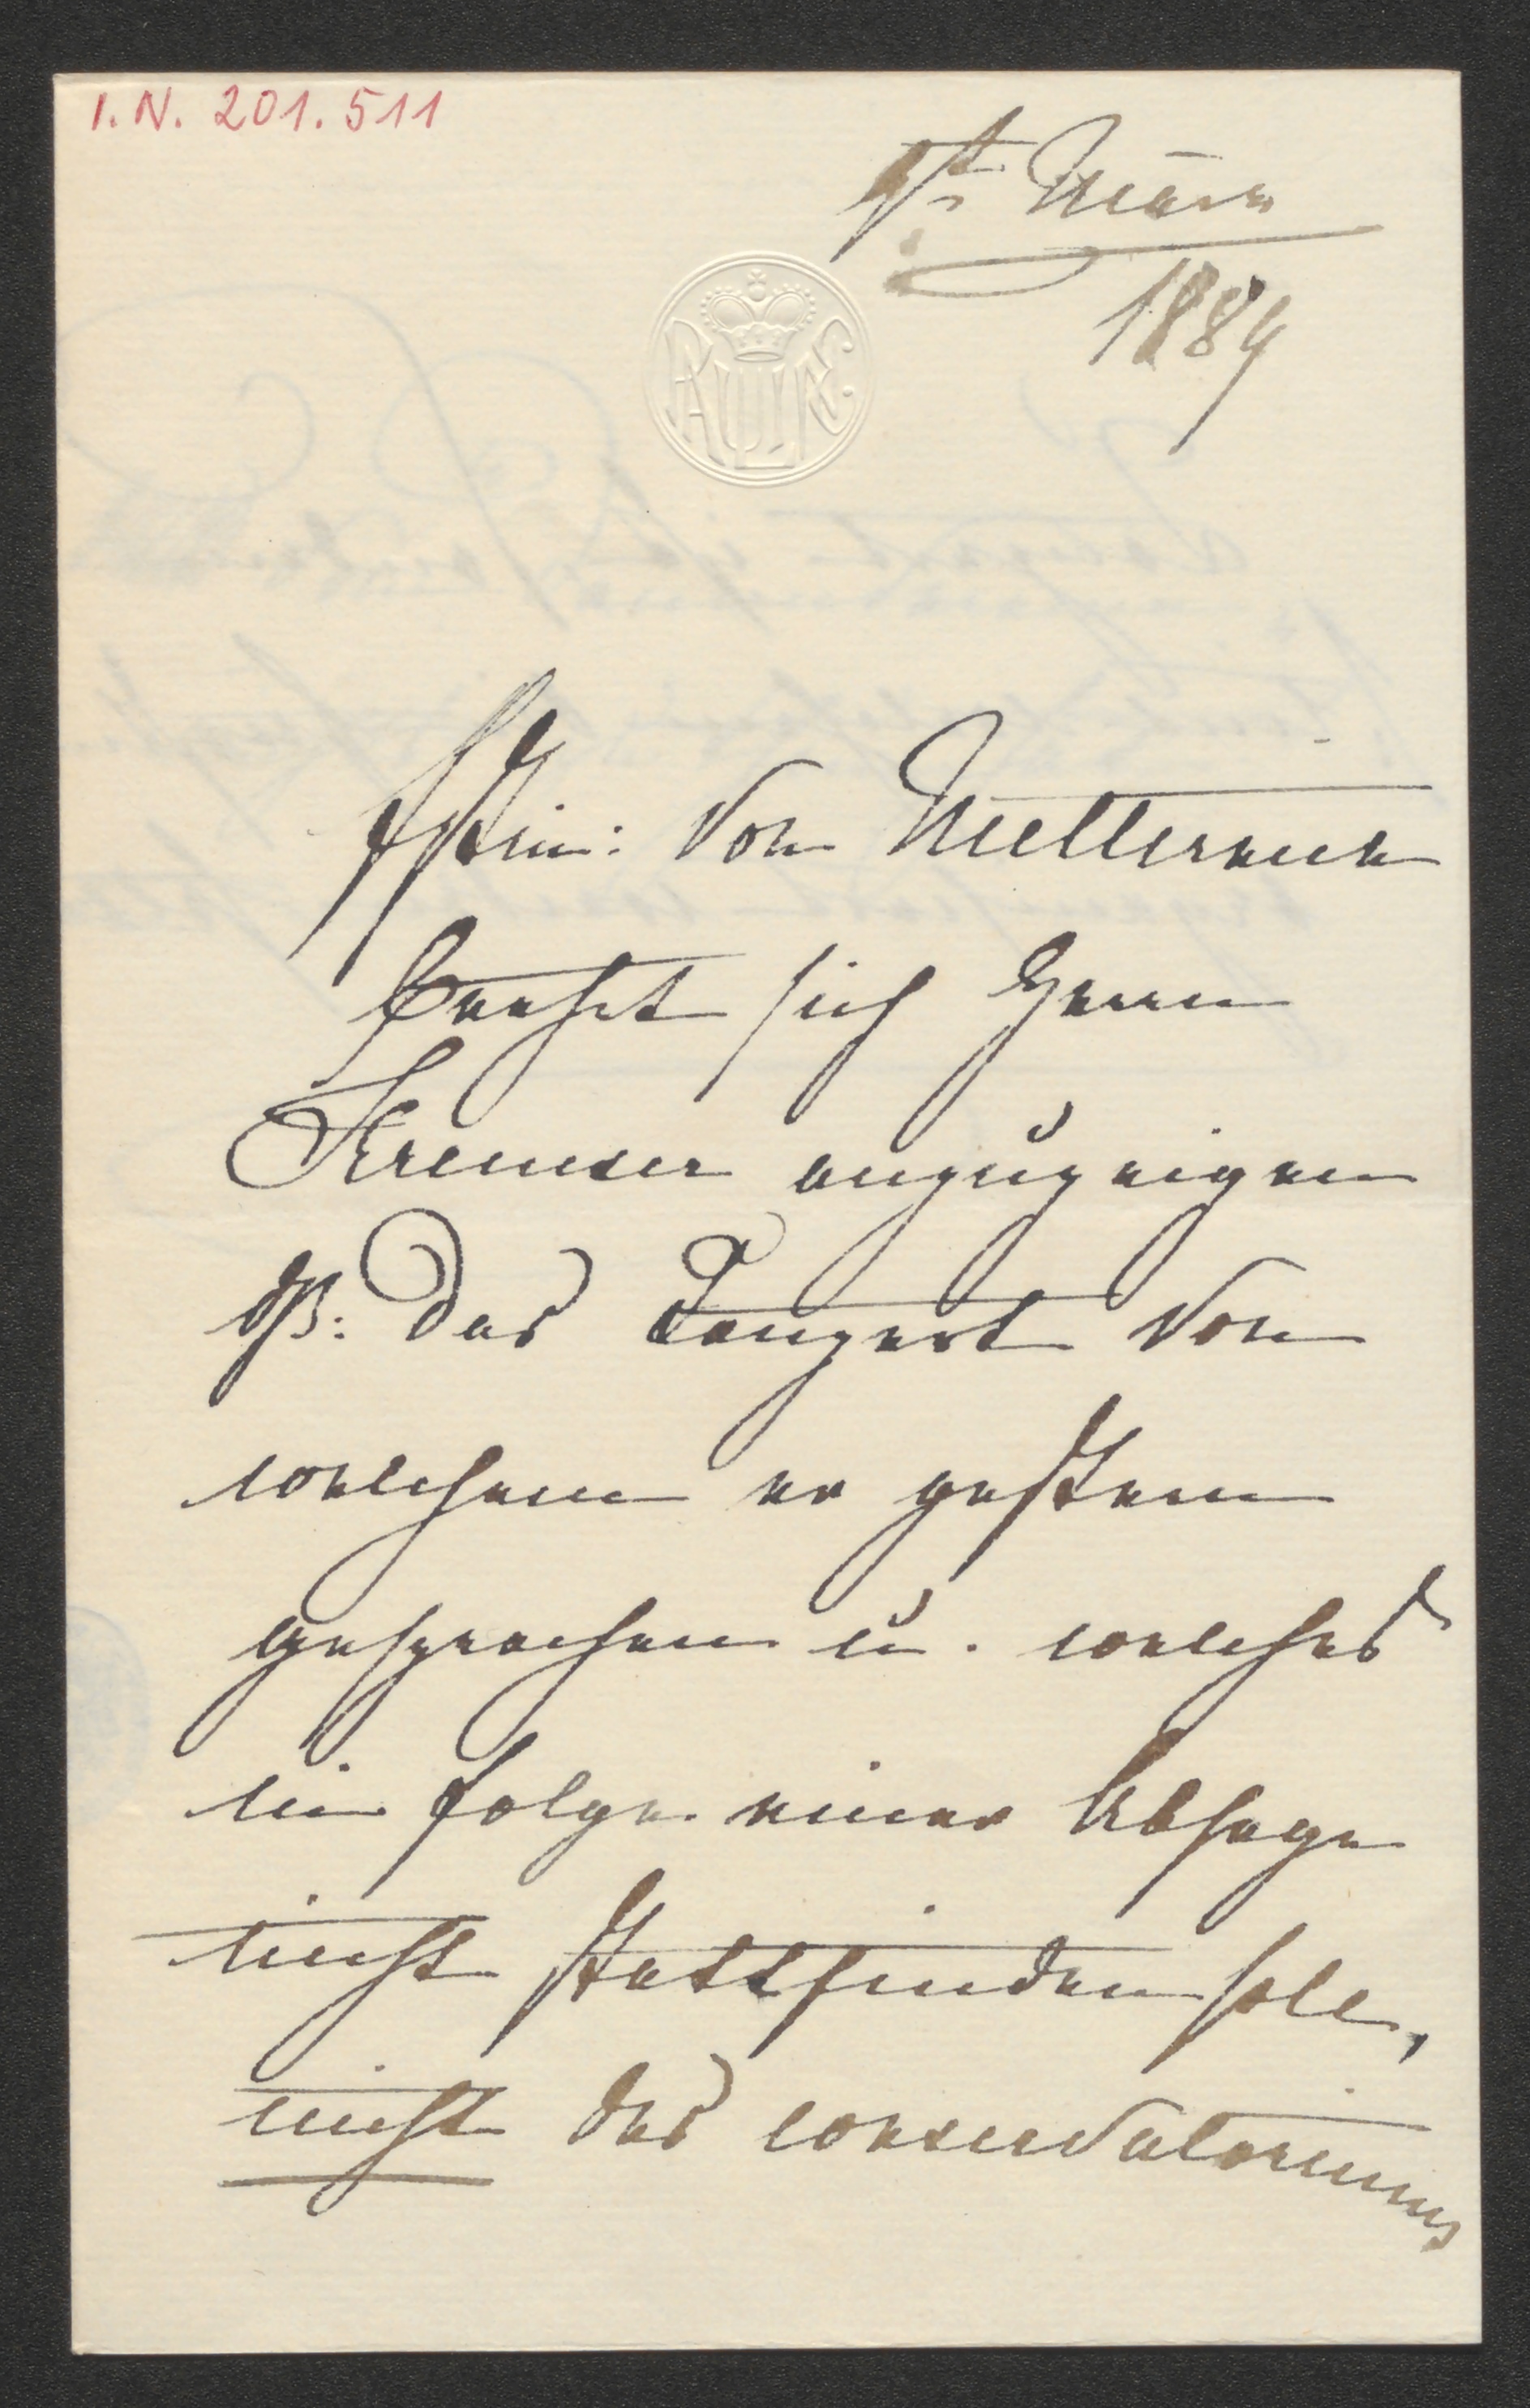 I.N. 201.511
9t März
1884
PAULINE.
Fstin: von Metternich
beehrt sich Herrn
Kremser anzuzeigen
dß: das Conzert von
welchem er gestern
gesprochen u. welches
in folge einer Absage
nicht stattfinden soll,
nicht das conservatoriums